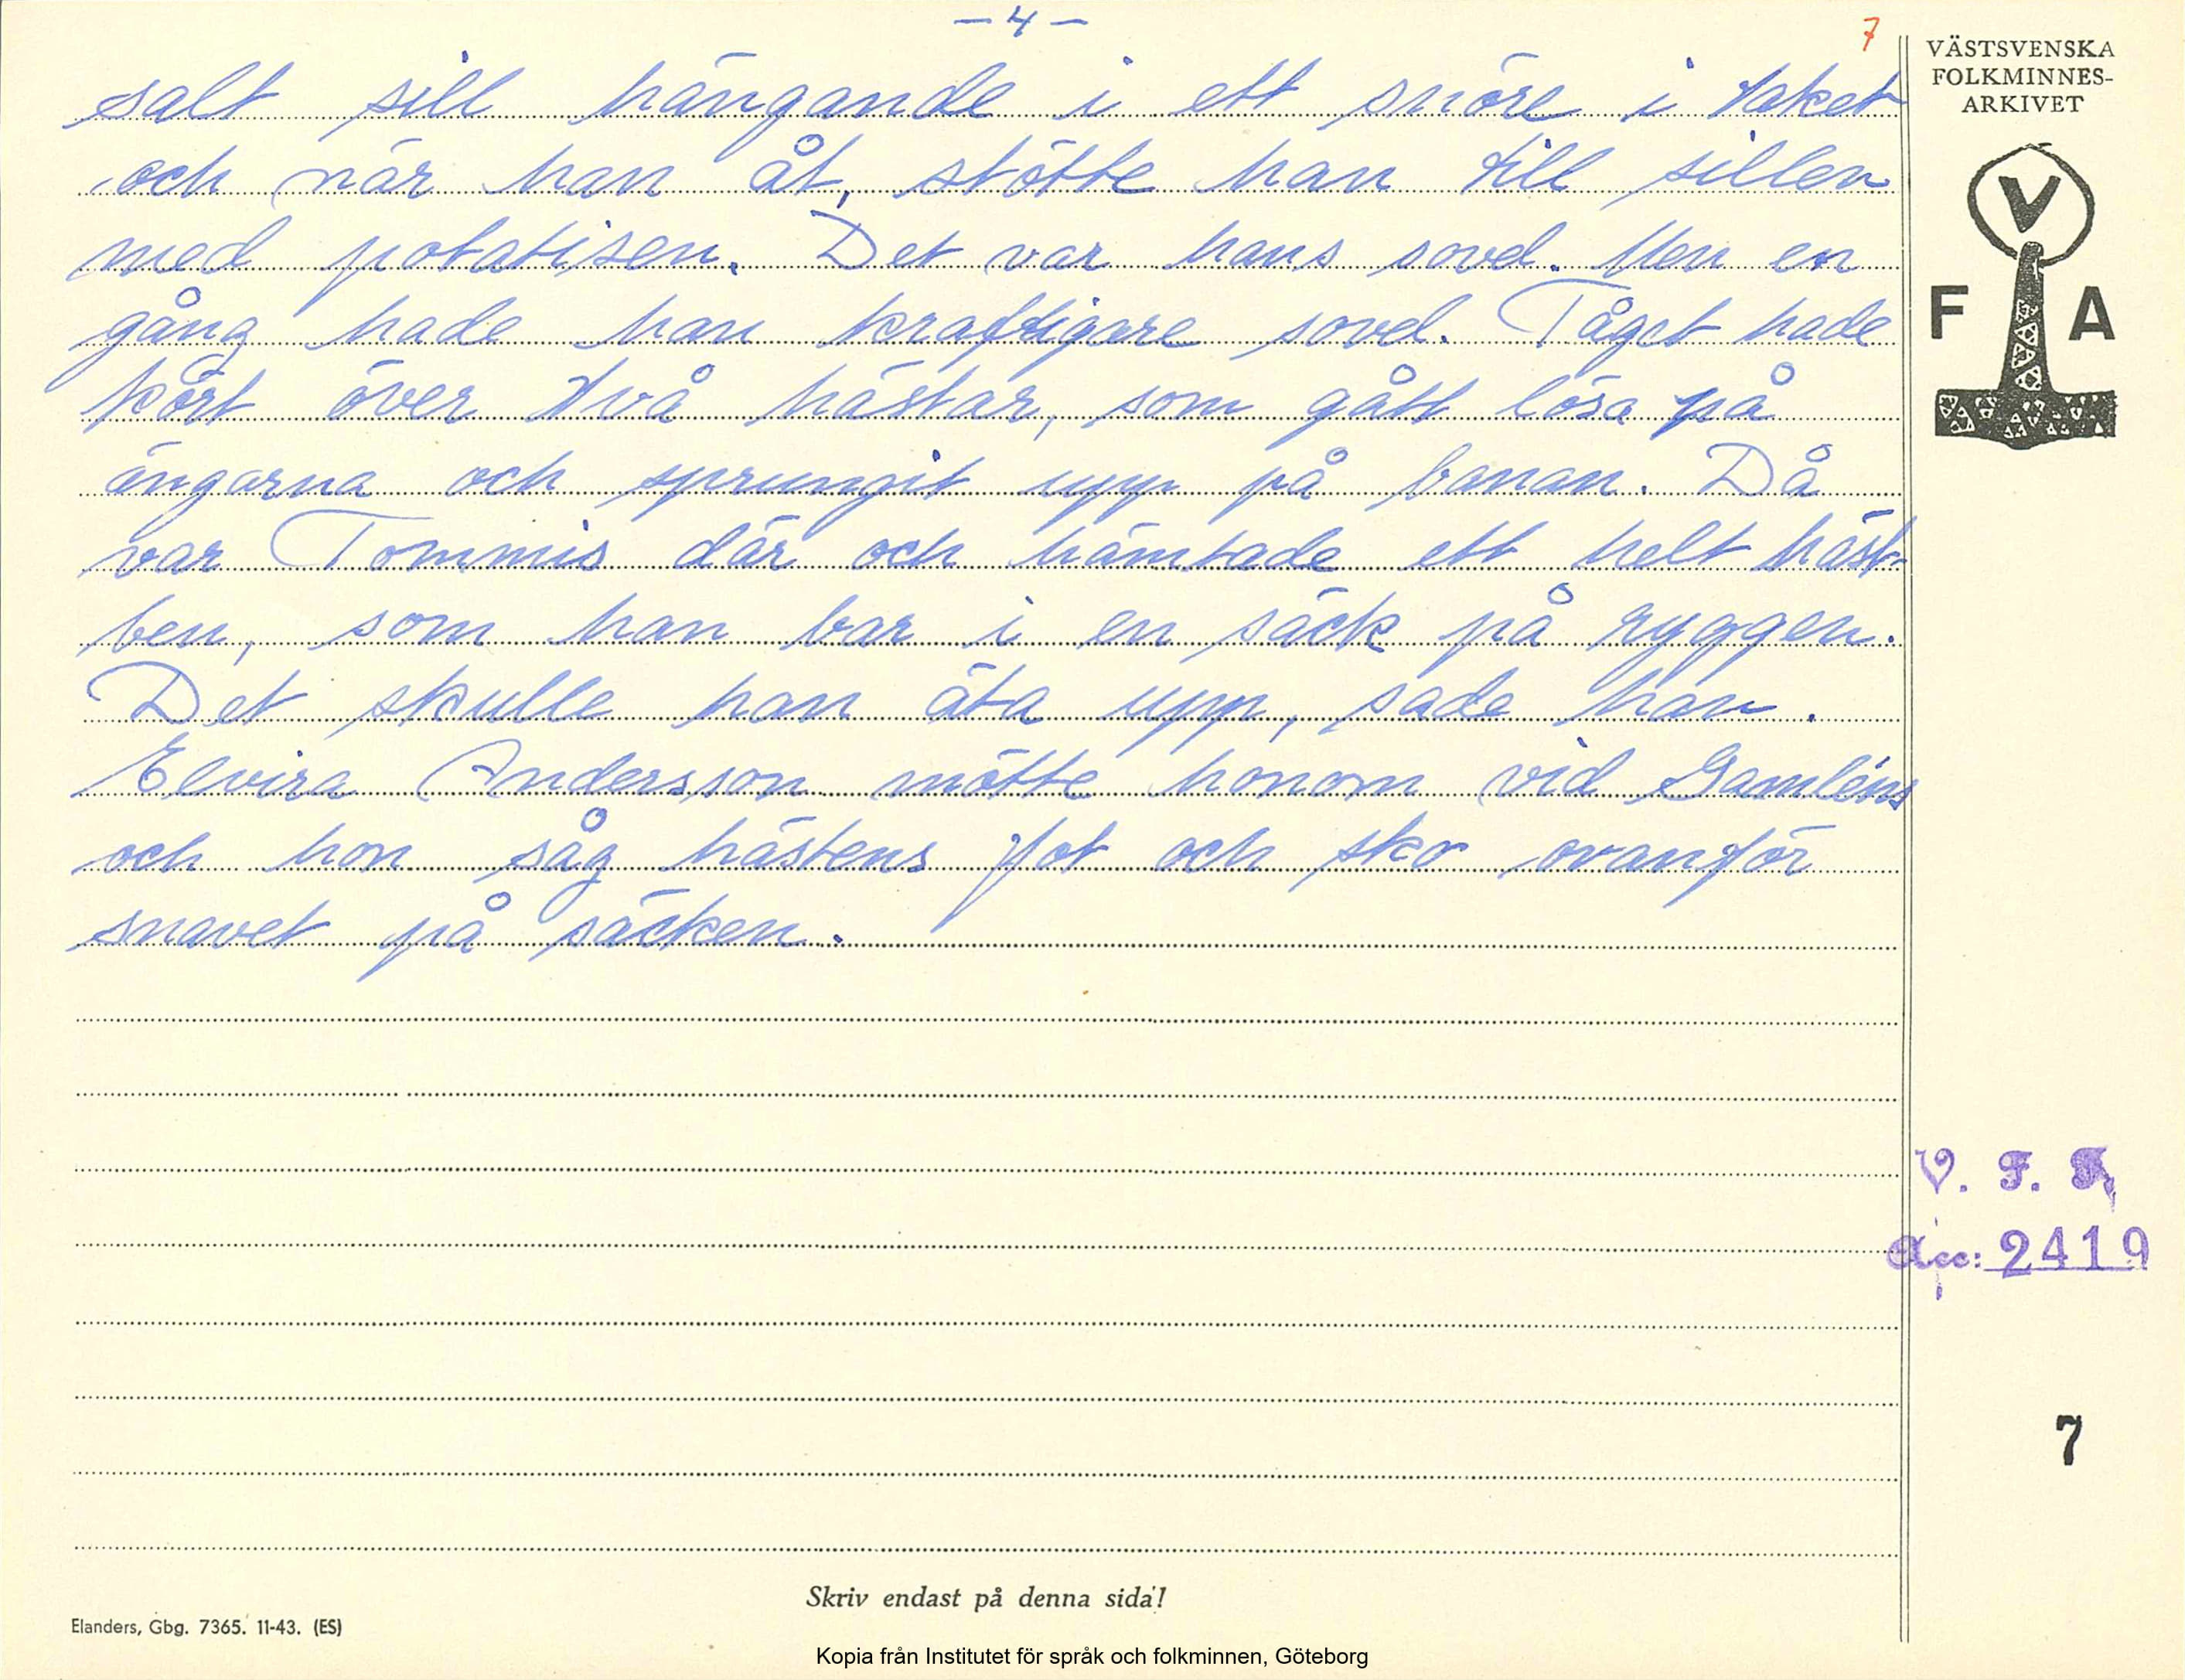 — 4 —
7
salt sill hängande i ett snöre i taket
och när han åt, stötte han till sillen
med potatisen. Det var hans sovel. Men en
gång hade han kraftigare sovel. Tåget hade
kört över två hästar, som gått lösa på
ängarna och sprungit upp på banan. Då
var Tommis där och hämtade ett helt häst-
ben, som han bar i en säck på ryggen.
Det skulle han äta upp, sade han.
Elvira Andersson mötte honom vid Gamléns
och hon såg hästens fot och sko ovanför
snavet på säcken.
VÄSTSVENSKA
FOLKMINNES-
ARKIVET
V
F A
V. F. A.
Acc: 2419
7
Skriv endast på denna sida!
Elanders, Gbg. 7365. 11-43. (ES)
Kopia från Institutet för språk och folkminnen, Göteborg